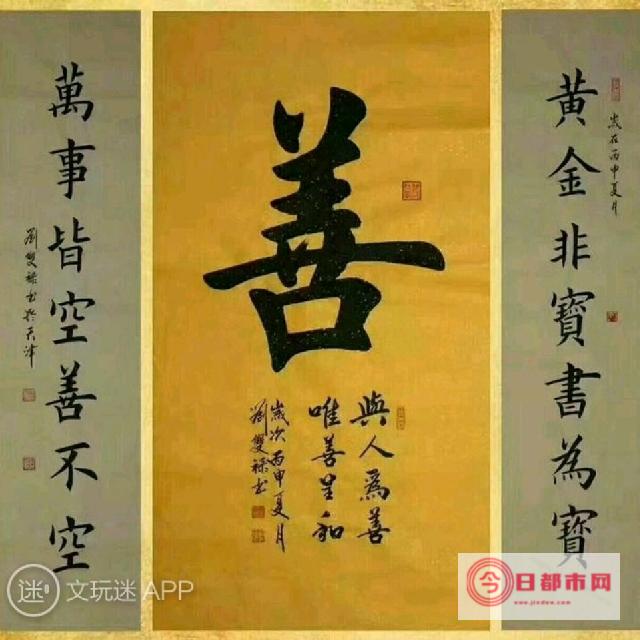 歲在丙申夏月
黄金非寶書為寶
善
與人為善
唯善呈和
歲次丙申夏月
劉雙祿書
萬事皆空善不空
劉雙祿書於天津
迷 文玩迷 APP
今日都市网
www.jindew.com